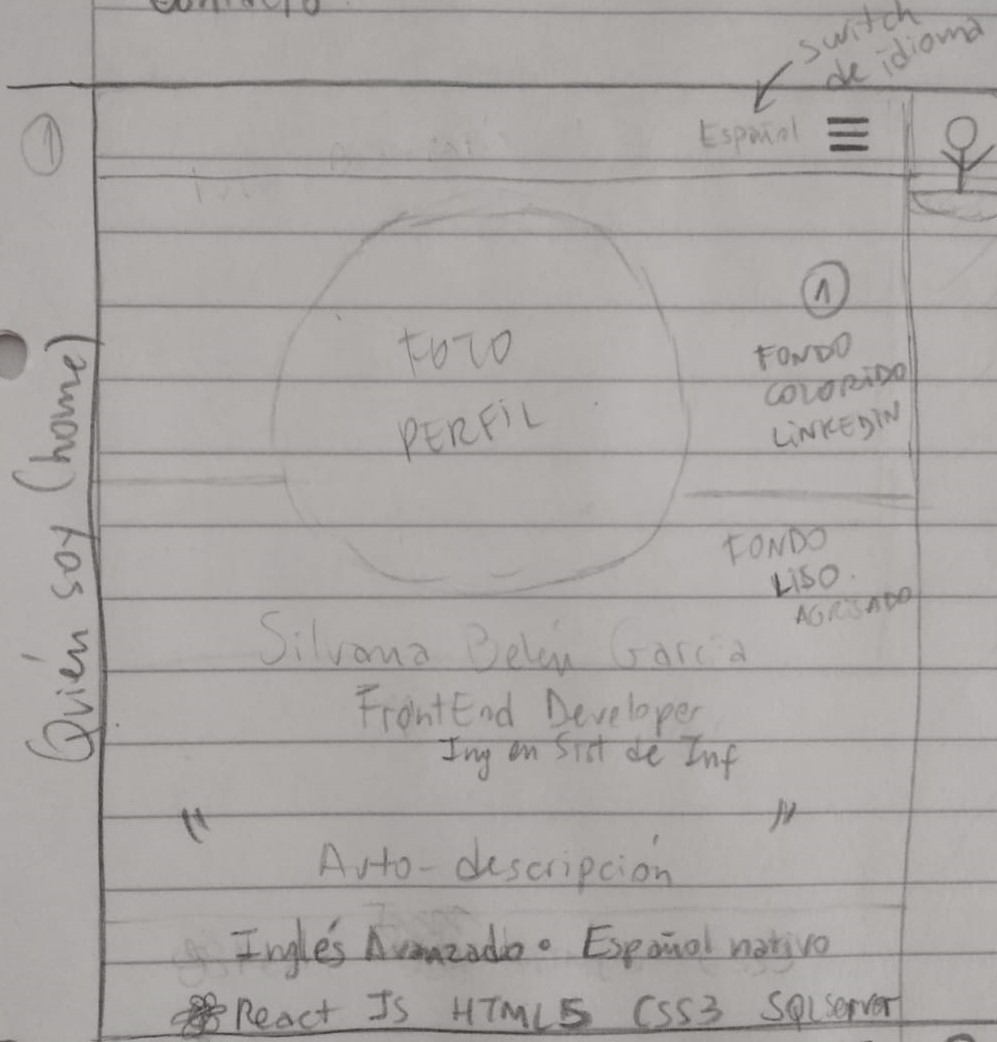 Contacto
switch
de idioma
1
Español
1
FOTO
PERFIL
FONDO
COLORIDO
LINKEDIN
Quién soy (home)
FONDO
LISO.
AGRISADO
Silvana Belén García
FrontEnd Developer
Ing en Sist de Inf
" "
Auto-descripción
Inglés Avanzado • Español nativo
React JS HTML5 CSS3 SQLServer